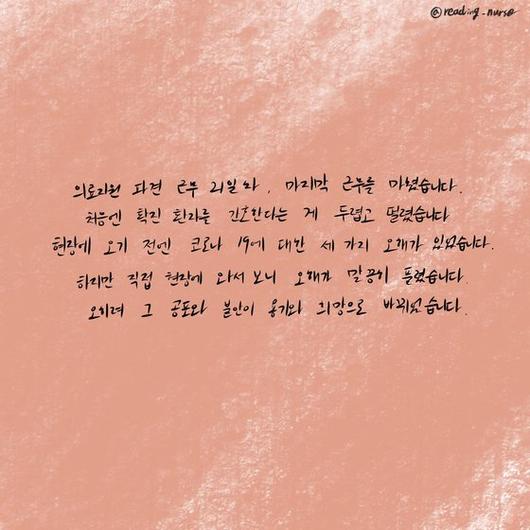 @reading_nurse
의료지원 파견 근무 21일 차, 마지막 근무를 마쳤습니다.
처음엔 확진 환자를 간호한다는 게 두렵고 떨렸습니다
현장에 오기 전엔 코로나 19에 대한 세 가지 오해가 있었습니다.
하지만 직접 현장에 와서 보니 오해가 말끔히 풀렸습니다.
오히려 그 공포와 불안이 용기와 희망으로 바뀌었습니다.